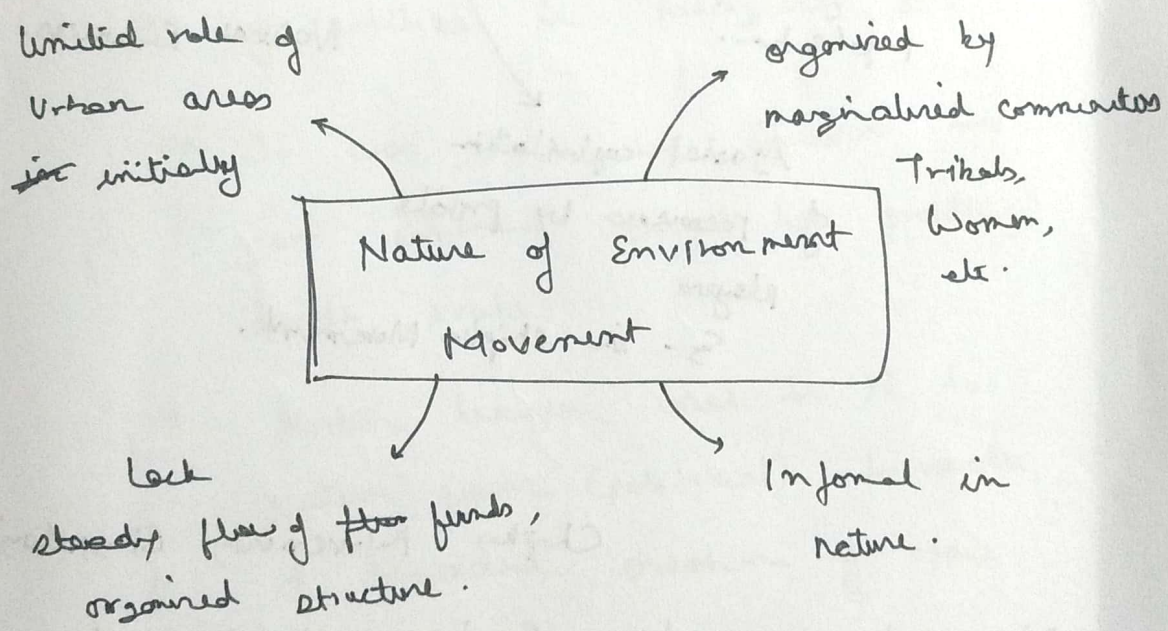 limited role of
Urban areas
initially
organised by
marginalised communities
Tribals,
Women,
etc.
Nature of Environment
Movement
Lack
steady flow of funds,
organised structure.
Informal in
nature.